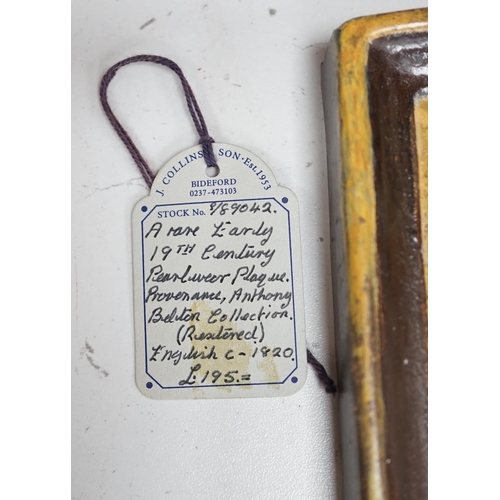 J. COLLINS & SON. Est. 1953
BIDEFORD
0237-473103
STOCK No. S/89042.
A rare Early
19TH Century
Pearlwear Plaque.
Provenance, Anthony
Belton Collection.
(Restored)
English c - 1820.
£195.=